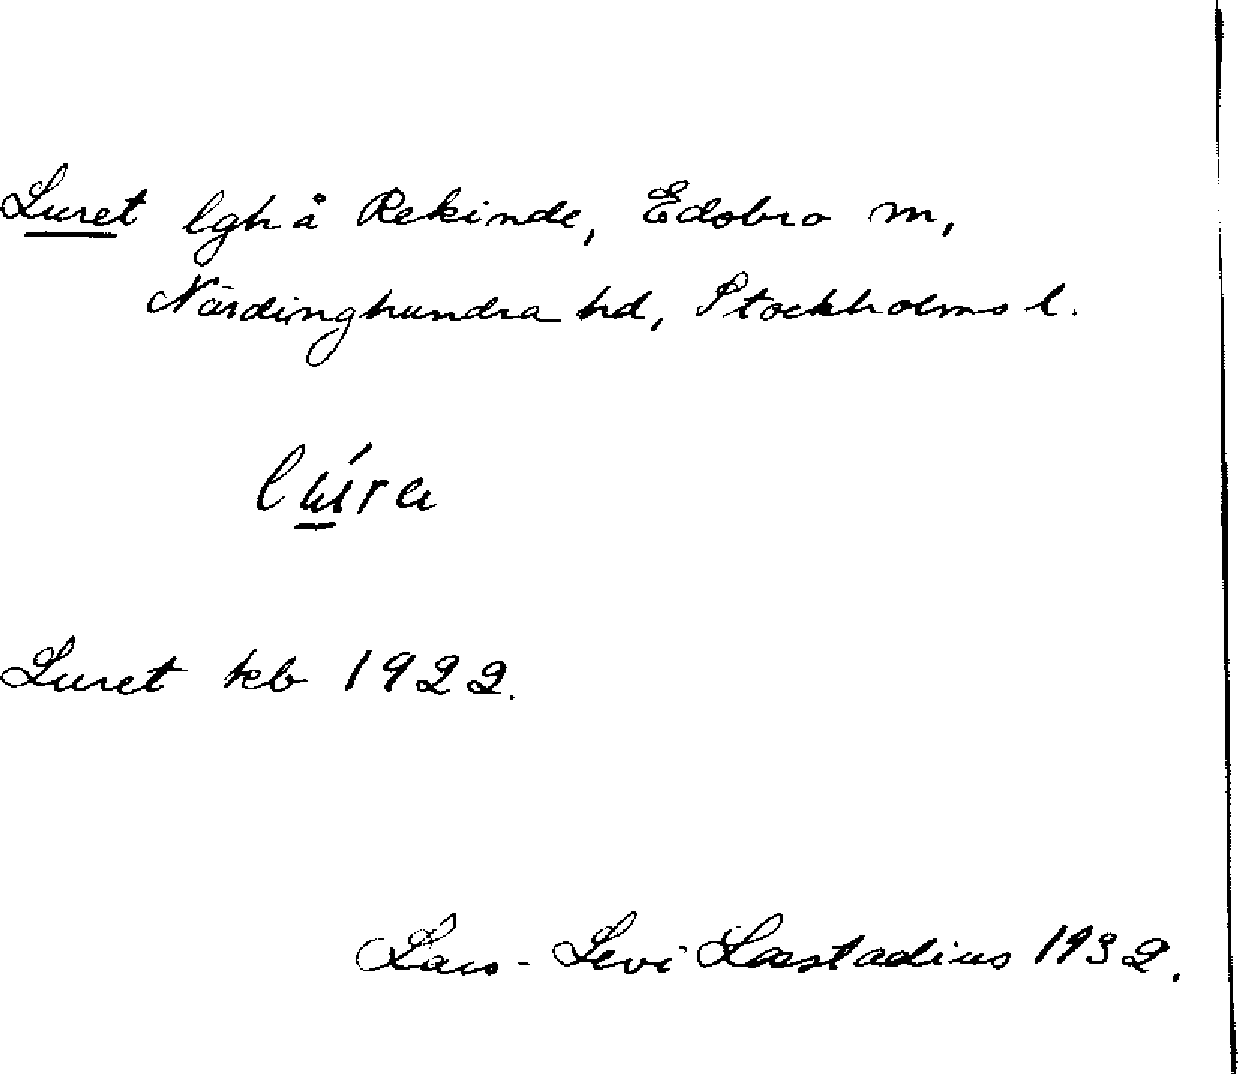 Luret lgh å Rekinde, Edsbro sn,
Närdinghundra hd, Stockholms l.
lú̲ra
Luret kb 1922.
Lars-Levi Læstadius 1932.